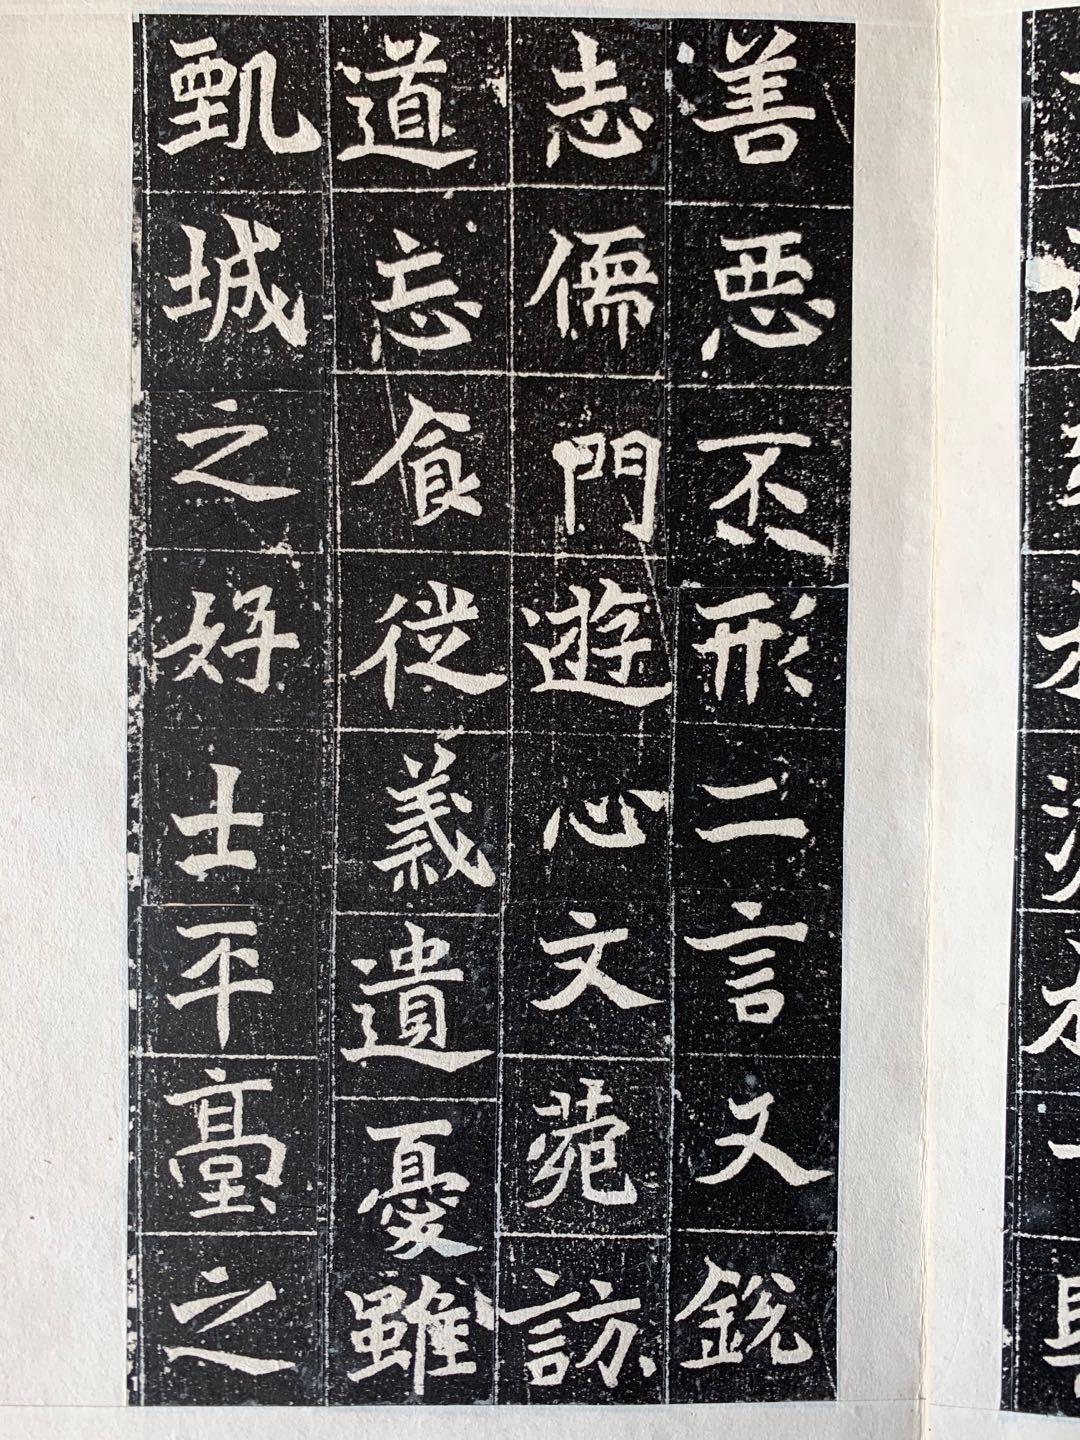 善惡丕形二言又銳
志儒門遊心文菀訪
道忘食從義遺憂雖
甄城之好士平臺之